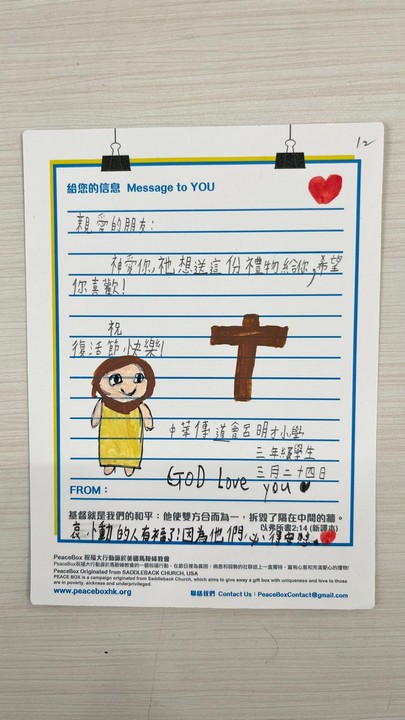 12
給您的信息 Message to YOU
親愛的朋友:
神愛你,祂想送這份禮物給你,希望
你喜歡!
祝
復活節快樂!
中華傳道會呂明才小學
三年級學生
三月二十四日
GOD Love you
FROM :
基督就是我們的和平:他使雙方合而為一,拆毀了隔在中間的牆。
以弗所書2:14 (新譯本)
哀慟的人有福了!因為他們必得安慰。
PeaceBox 祝福大行動源於美國馬鞍峰教會
PeaceBox Originated from SADDLEBACK CHURCH, USA
PEACE BOX is a campaign originated from Saddleback Church, which aims to give away a gift box with uniqueness and love to those
are in poverty, sickness and underprivileged.
www.peaceboxhk.org
聯絡我們 Contact Us : PeaceBoxContact@gmail.com